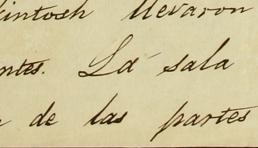 kintosh llevaron
ntes. La sala
de las partes